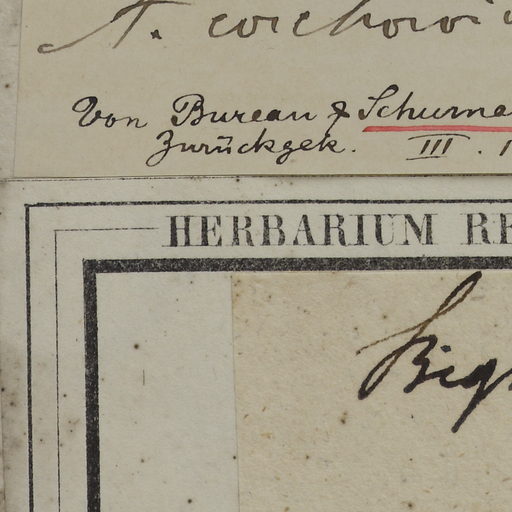 Von Bureau & Schuma
Zurückgek. III. 1
HERBARIUM RE
Big